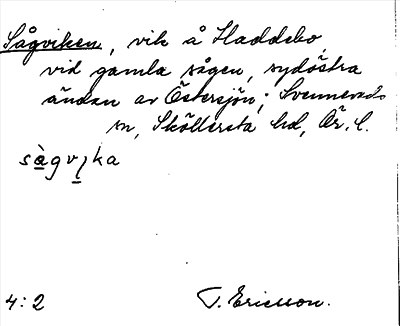 Sågviken, vik å Haddebo,
vid gamla sågen, sydöstra
ändan av Östersjön; Svennevads
sn, Sköllersta hd, Ör. l.
sàgvıka
4:2
T. Ericsson.